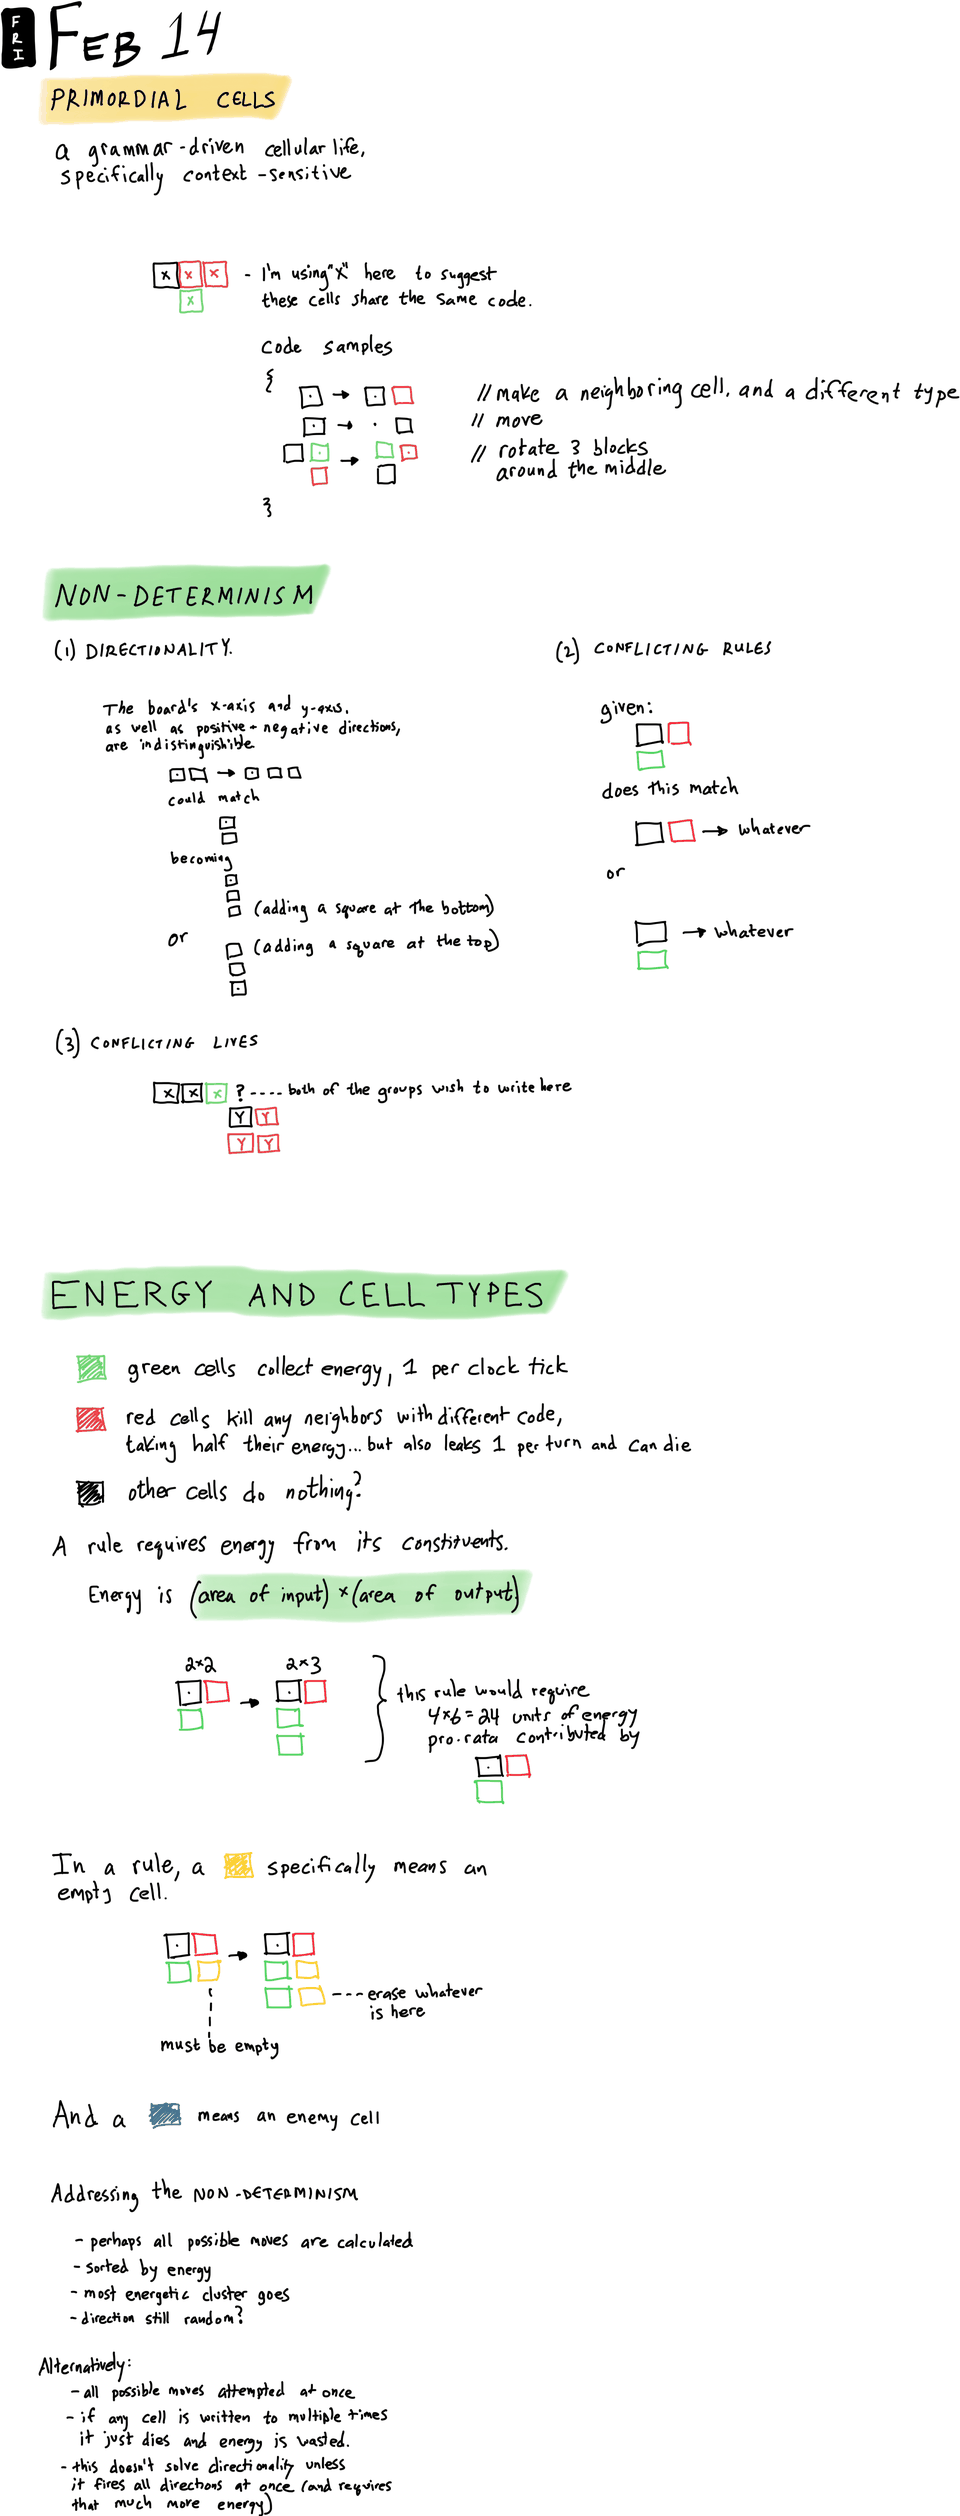 FRI
FEB 14
PRIMORDIAL CELLS
a grammar-driven cellular life,
specifically context-sensitive
x x x
x
- I'm using "X" here to suggest
these cells share the same code.
Code samples
{
// make a neighboring cell, and a different type
// move
// rotate 3 blocks
around the middle
}
NON-DETERMINISM
(1) DIRECTIONALITY.
The board's x-axis and y-axis,
as well as positive + negative directions,
are indistinguishible
could match
becoming
(adding a square at the bottom)
or
(adding a square at the top)
(2) CONFLICTING RULES
given:
does this match
→ whatever
or
→ whatever
(3) CONFLICTING LIVES
X X X ? ---- both of the groups wish to write here
Y Y
Y Y
ENERGY AND CELL TYPES
green cells collect energy, 1 per clock tick
red cells kill any neighbors with different code,
taking half their energy... but also leaks 1 per turn and can die
other cells do nothing?
A rule requires energy from its constituents.
Energy is (area of input) × (area of output)
2×2 2×3
this rule would require
4×6=24 units of energy
pro-rata contributed by
In a rule, a specifically means an
empty cell.
--- erase whatever
is here
must be empty
And a means an enemy cell
Addressing the NON-DETERMINISM
- perhaps all possible moves are calculated
- sorted by energy
- most energetic cluster goes
- direction still random?
Alternatively:
- all possible moves attempted at once
- if any cell is written to multiple times
it just dies and energy is wasted.
- this doesn't solve directionality unless
it fires all directions at once (and requires
that much more energy)